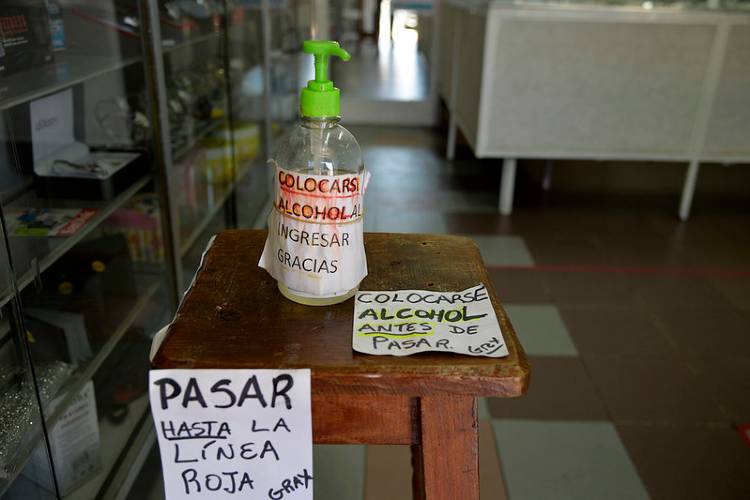 COLOCARS
ALCOHOL AL
INGRESAR
GRACIAS
COLOCARSE
ALCOHOL
ANTES DE
PASAR. GRAX
PASAR
HASTA LA
LÍNEA
ROJA GRAX